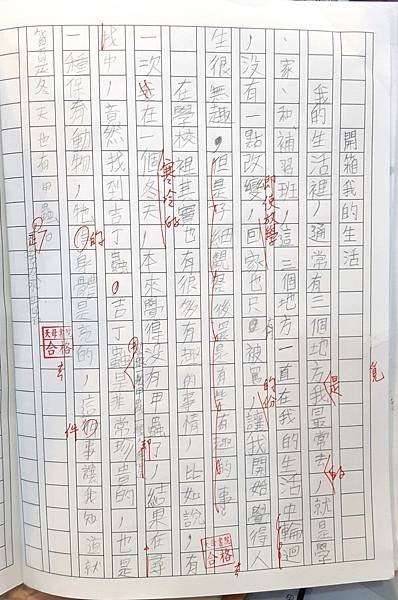 開箱我的生活
我的生活裡，通常有三個地方我最常去，就是學
、家、和補習班，這三個地方一直在我的生活中輪迴
，沒有一點改變，回家也只有被罵，讓我開始覺得人
生很無趣，但是仔細觀察後還是有些有趣的事。
在學校裡其實也有很多有趣的事情，比如說，有
一次在一個冬天，本來覺得沒有甲蟲了，結果在尋
找中，竟然找到吉丁蟲，吉丁蟲是非常珍貴的，也是
一種保育動物，牠的身體是亮的，這個事讓我知道就
算是冬天也有甲蟲。
覓
是
的
即使放學
的份
寒冷的
件
合格
合格